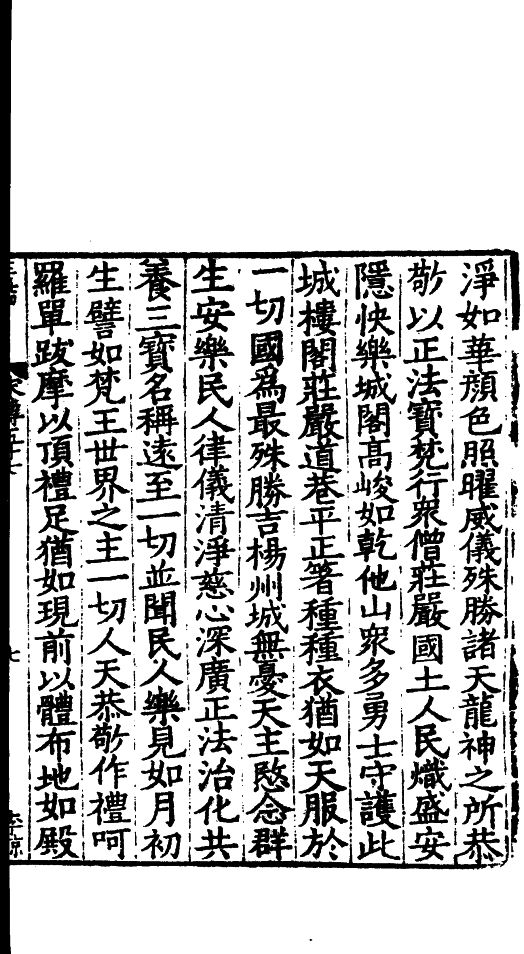 淨如華顔色照曜威儀殊勝諸天龍神之所恭
敬以正法寶梵行衆僧莊嚴國土人民熾盛安
隱快樂城閣高峻如乾他山衆多勇士守護此
城樓閣莊嚴道巷平正箸種種衣猶如天服於
一切國爲最殊勝吉楊州城無憂天主愍念群
生安樂民人律儀清淨慈心深廣正法治化共
養三寶名稱遠至一切並聞民人樂見如月初
生譬如梵王世界之主一切人天恭敬作禮呵
羅單跋摩以頂禮足猶如現前以體布地如殿
七